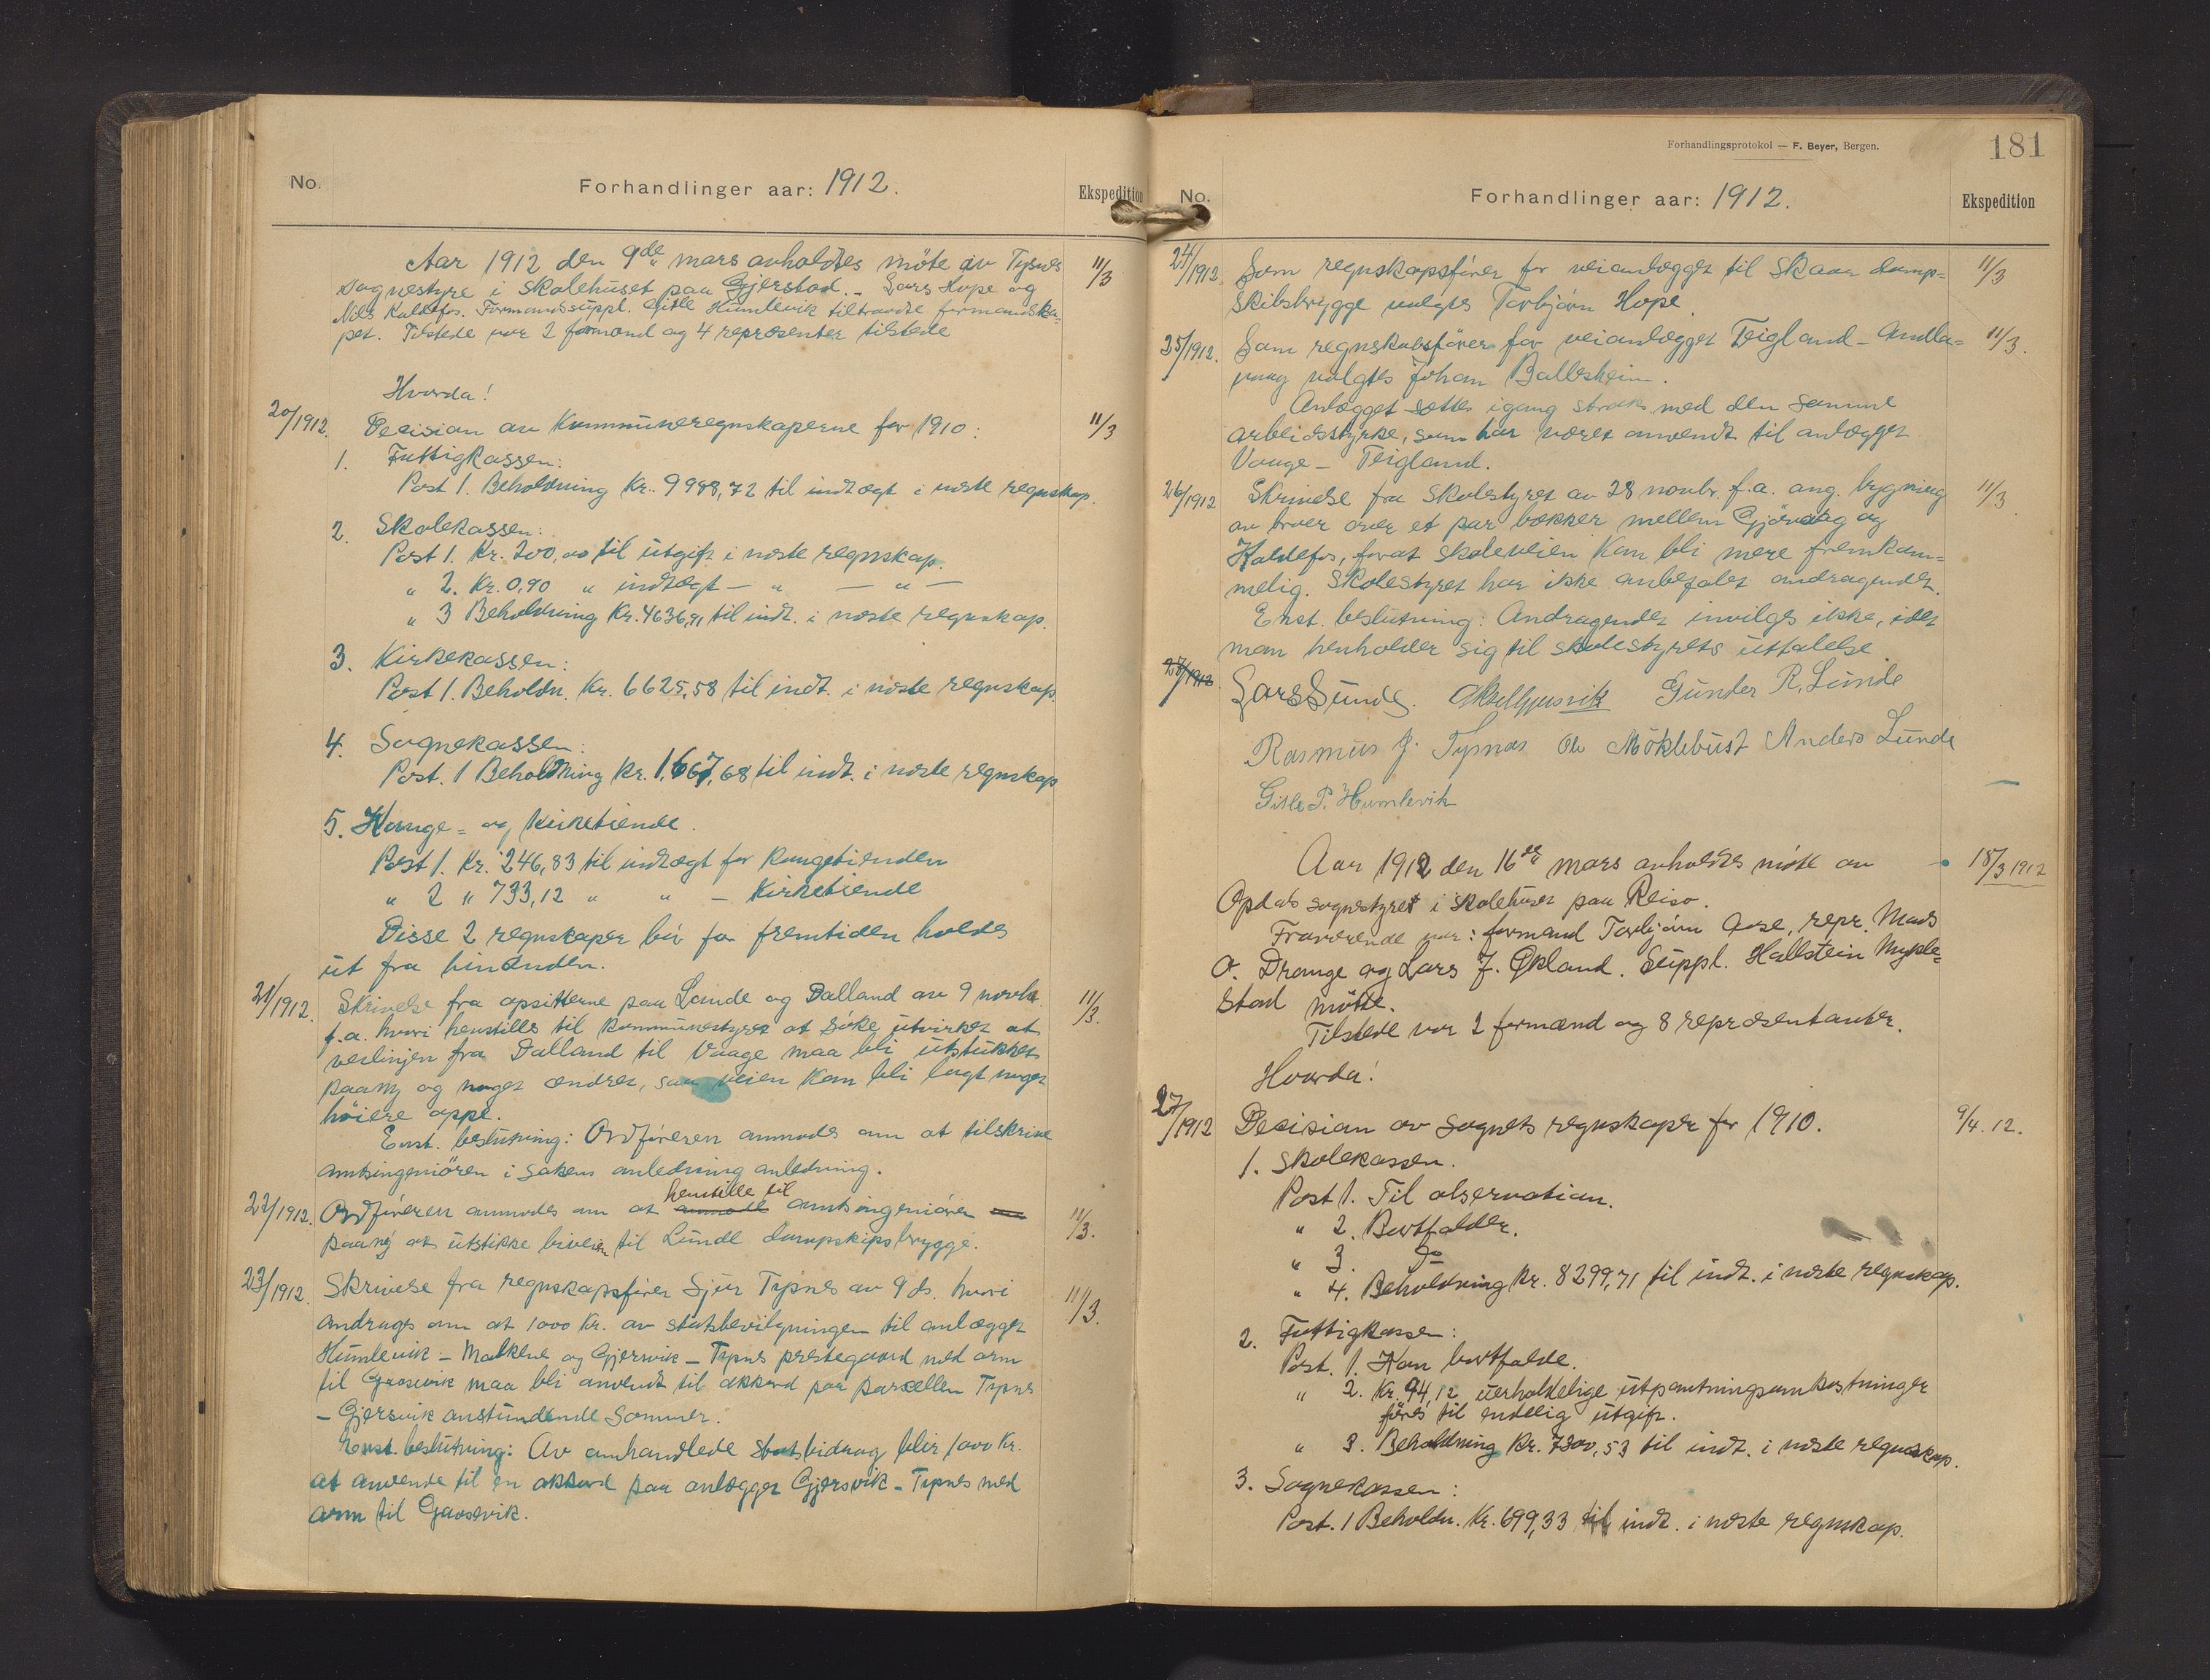 No.
Forhandlinger aar: 1912.
Ekspedition
Aar 1912 den 9de mars avholdtes möte av Tysnes 11/3
sognestyre i skolehuset paa Gjerstad. - Lars Hope og
Nils Kaldefos. Formandssuppl. Gitle Humlevik tiltraadte formandska-
pet. Tilstede var 2 formænd og 4 repræsenter tilstede
Hvorda!
20/1912. Decision av Kommuneregnskaperne for 1910: 11/3
1. Fattigkassen:
Post 1. Beholdning Kr. 9988,72 til indtægt i næste regnskap.
2. Skolekassen:
Post 1. Kr. 200,00 til utgift i næste regnskap.
" 2. Kr. 0,90 " indtægt - " - " -
" 3 Beholdning Kr. 4636,91 til indt. i næste regnskap.
3. Kirkekassen:
Post 1. Beholdn. Kr. 6625,58 til indt. i næste regnskap.
4. Sognekassen:
Post. 1 Beholdning Kr. 1667,68 til indt. i næste regnskap
5. Konge- og Kirketiende.
Post 1. Kr. 246,83 til indtægt for Kongetienden
" 2 " 733,12 " " - Kirketiende
Disse 2 regnskaper bör for fremtiden holdes
ut fra hinanden.
21/1912. Skrivelse fra opsitterne paa Lande og Dalland av 9 novbr. 11/3.
f.a. hvori henstilles til Kommunestyret at söke utvirket at
veilinjen fra Dalland til Vaage maa bli utstukket
paany og noget ændret, saa veien kan bli lagt noget
höiere oppe.
Enst. beslutning: Ordföreren anmodes om at tilskrive
amtsingeniören i sakens anledning anledning.
henstille til
22/1912. Ordföreren anmodes om at anmode amtsingeniören 11/3.
paany at utstikke biveien til Lunde dampskipsbrygge.
23/1912. Skrivelse fra regnskapsförer Sjur Tysnes av 9 ds. hvori 11/3.
andrages om at 1000 Kr. av statsbevilgningen til anlægget
Humlevik - Malkenes og Gjersvik - Tysnes prestegaard med arm
til Gaasevik maa bli anvendt til akkord paa parcellen Tysnes
- Gjersvik anstundende sommer.
Enst. beslutning: Av omhandlede statsbidrag blir 1000 Kr.
at anvende til en akkord paa anlægget Gjersvik - Tysnes med
arm til Gaasevik.
Forhandlingsprotokol — F. Beyer, Bergen.
181
No.
Forhandlinger aar: 1912.
Ekspedition
24/1912. Som regnskapsförer for veianlægget til Skaar damp- 11/3
skibsbrygge valgtes Torbjörn Hope.
25/1912. Som regnskabsförer for veianlægget Teigland - Andla- 11/3.
vaag valgtes Johan Ballesheim.
Anlægget sættes igang straks med den samme
arbeidsstyrke, som har været anvendt til anlægget
Vaage - Teigland.
26/1912 Skrivelse fra skolestyret av 28 novbr. f.a. ang. bygning 11/3
av broer over et par bækker mellem Gjövaag og
Kaldefos, forat skoleveien kan bli mere fremkom-
melig. Skolestyret har ikke anbefalet andragendet.
Enst. beslutning: Andragendet invilges ikke, idet
man henholder sig til skolestyrets uttalelse.
27/1912
Lars Lunde. Aksel Gjersvik Gunder R. Lunde
Rasmus J. Tysnes Ole Möklebust Anders Lunde
Gitle P. Humlevik
Aar 1912 den 16de mars avholdtes möte av 18/3 1912
Opdals sognestyret i skolehuset paa Reiso.
Fraværende var: formand Torbjörn Aase, repr. Mons
O. Drange og Lars J. Økland. Suppl. Hallstein Mykle-
stad mötte.
Tilstede var 2 formænd og 8 repræsentanter.
Hvorda!
27/1912 Decision av sognets regnskaper for 1910. 9/4. 12.
1. Skolekassen.
Post 1. Til observation.
" 2. Bortfalder.
" 3. Do
" 4. Beholdning Kr. 8299,71 til indt. i næste regnskap.
2. Fattigkassen:
Post. 1. Kan bortfalde.
" 2. Kr. 94,12 uerholdelige utpantningsomkostninger
föres til endelig utgift.
" 3. Beholdning Kr. 7300,53 til indt. i næste regnskap.
3. Sognekassen:
Post. 1 Beholdn. Kr. 699,33 til indt. i næste regnskap.